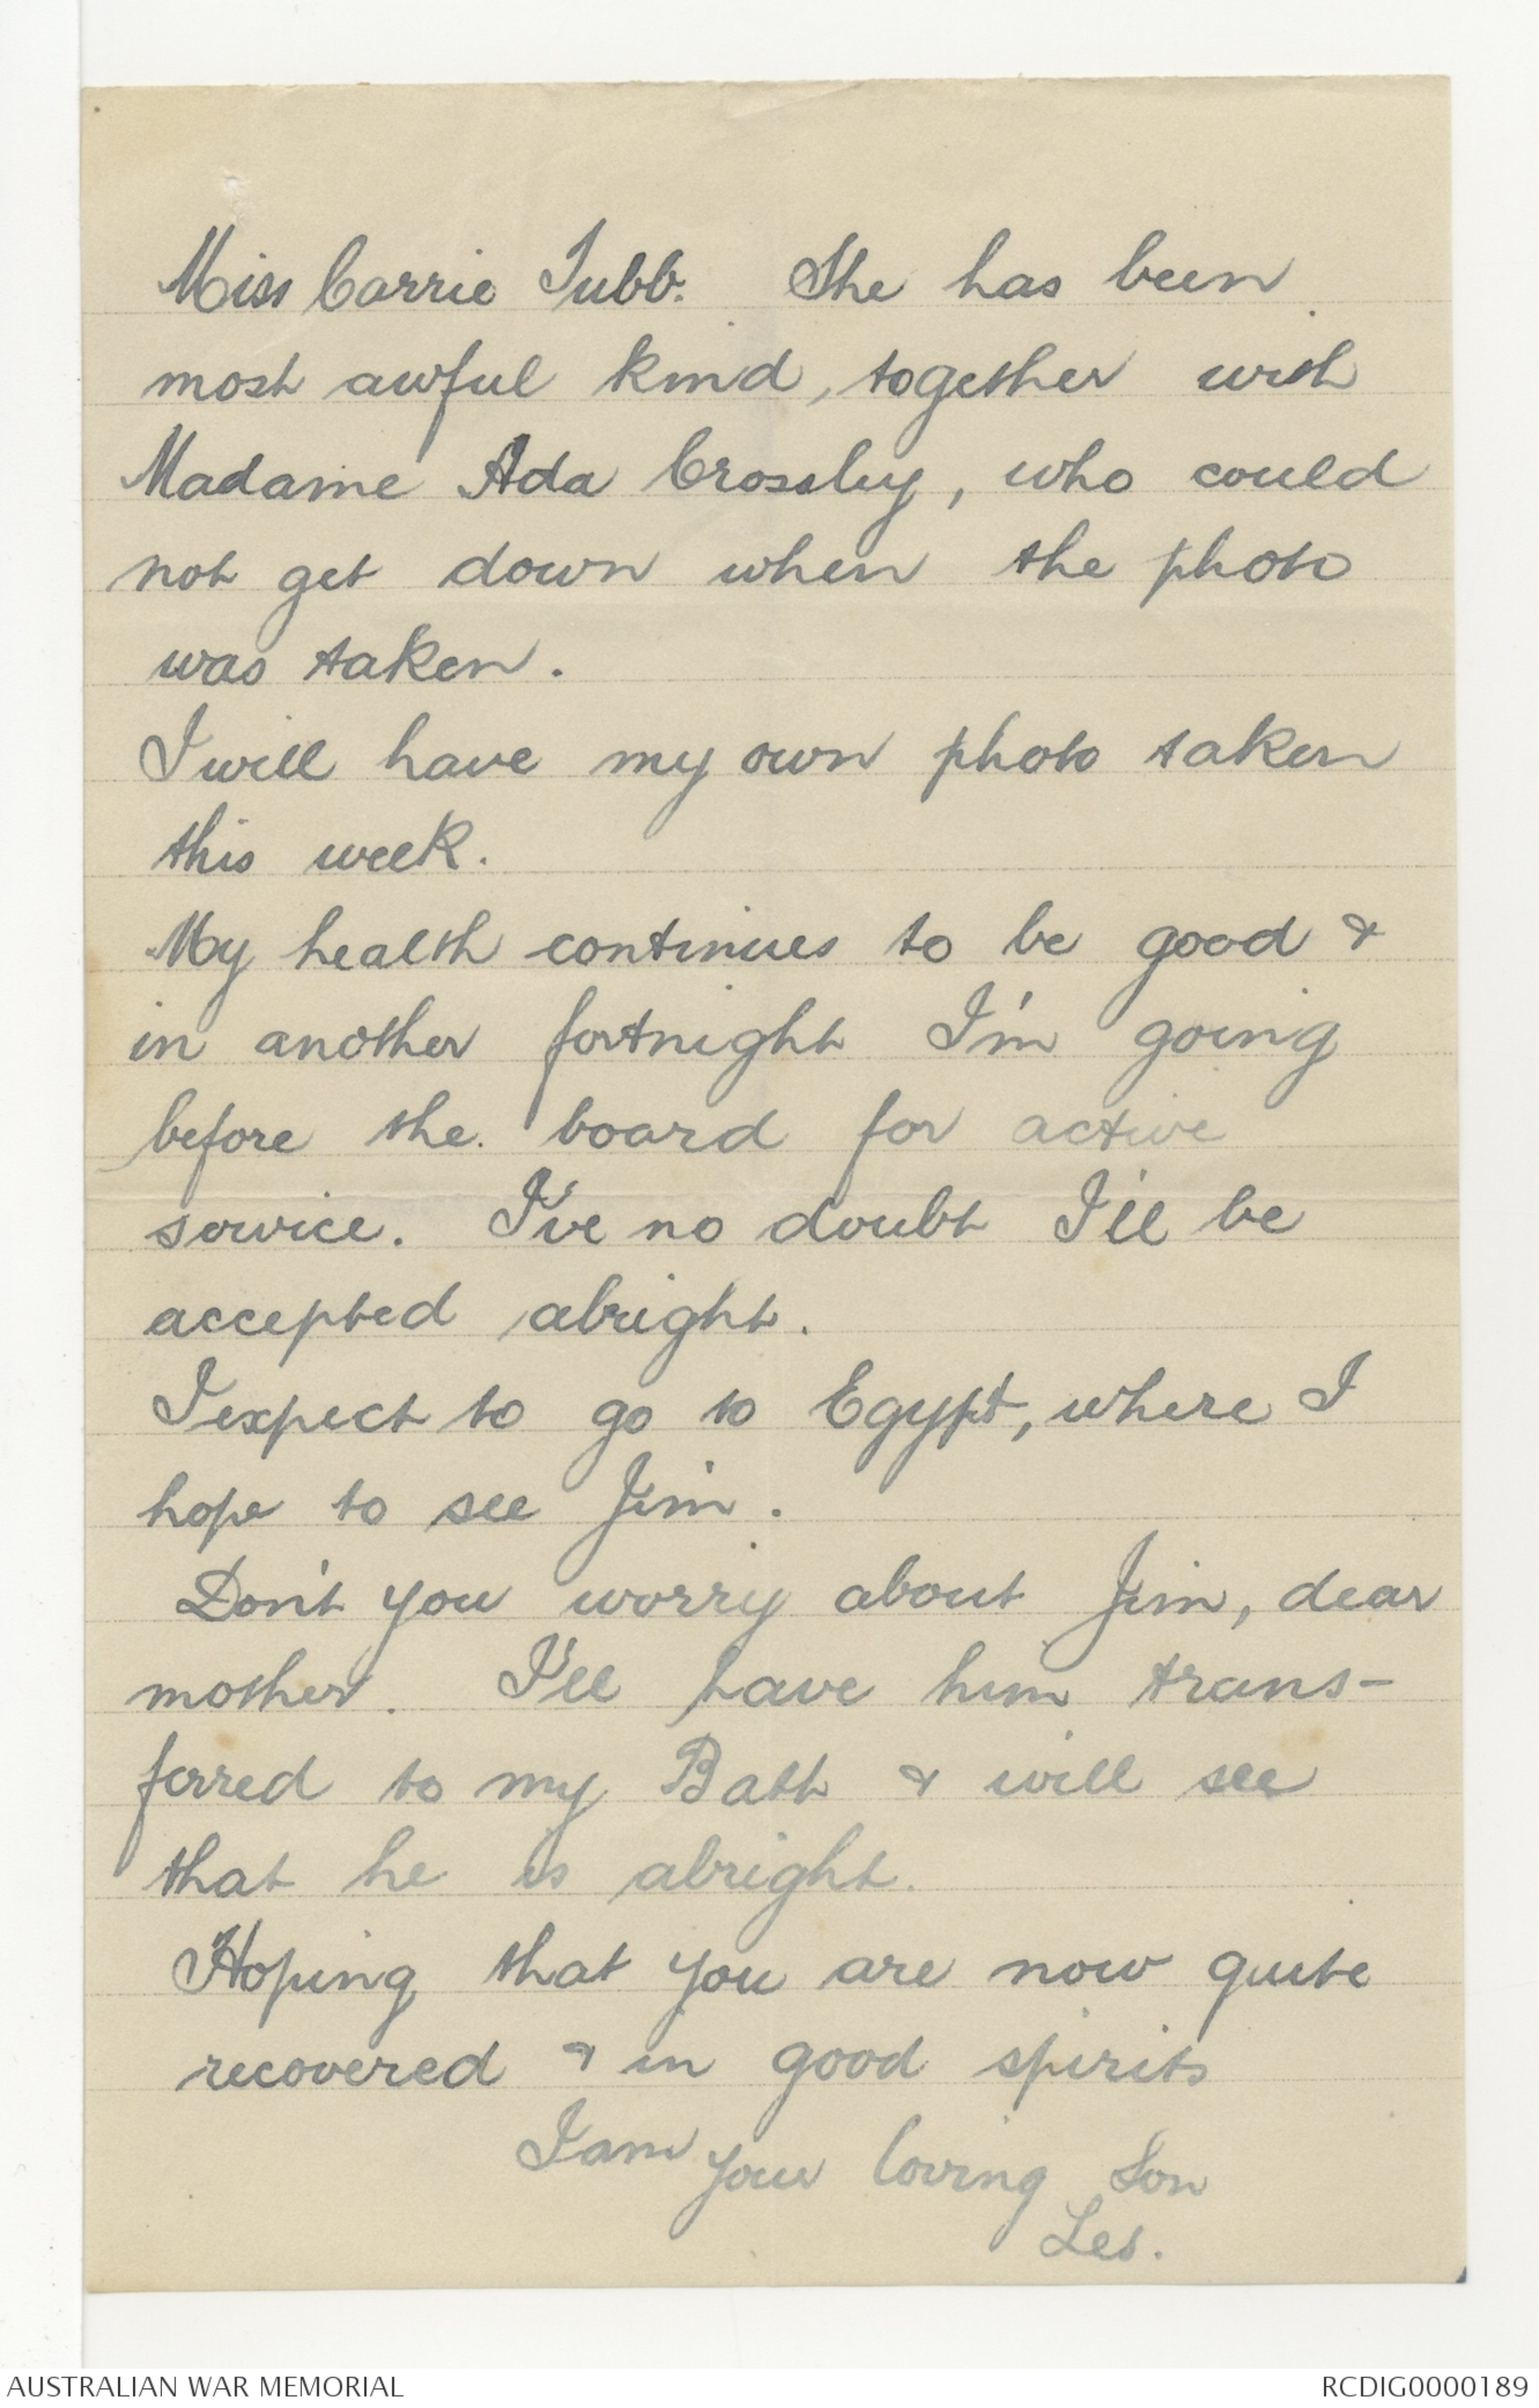 Miss Carrie Tubb. She has been
most awful kind, together with
Madame Ada Crossley, who could
not get down when the photo
was taken.
I will have my own photo taken
this week.
My health continues to be good &
in another fortnight I'm going
before the board for active
service. I've no doubt I'll be
accepted alright.
I expect to go to Egypt, where I
hope to see Jim.
Don't you worry about Jim, dear
mother. I'll have him trans-
ferred to my Batt & will see
that he is alright.
Hoping that you are now quite
recovered & in good spirits
I am your loving Son
Les.
AUSTRALIAN WAR MEMORIAL
RCDIG0000189